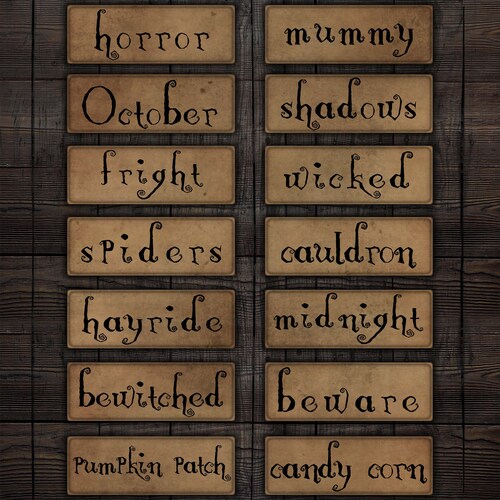 horror
mummy
October
shadows
fright
wicked
spiders
cauldron
hayride
midnight
bewitched
beware
Pumpkin Patch
candy corn